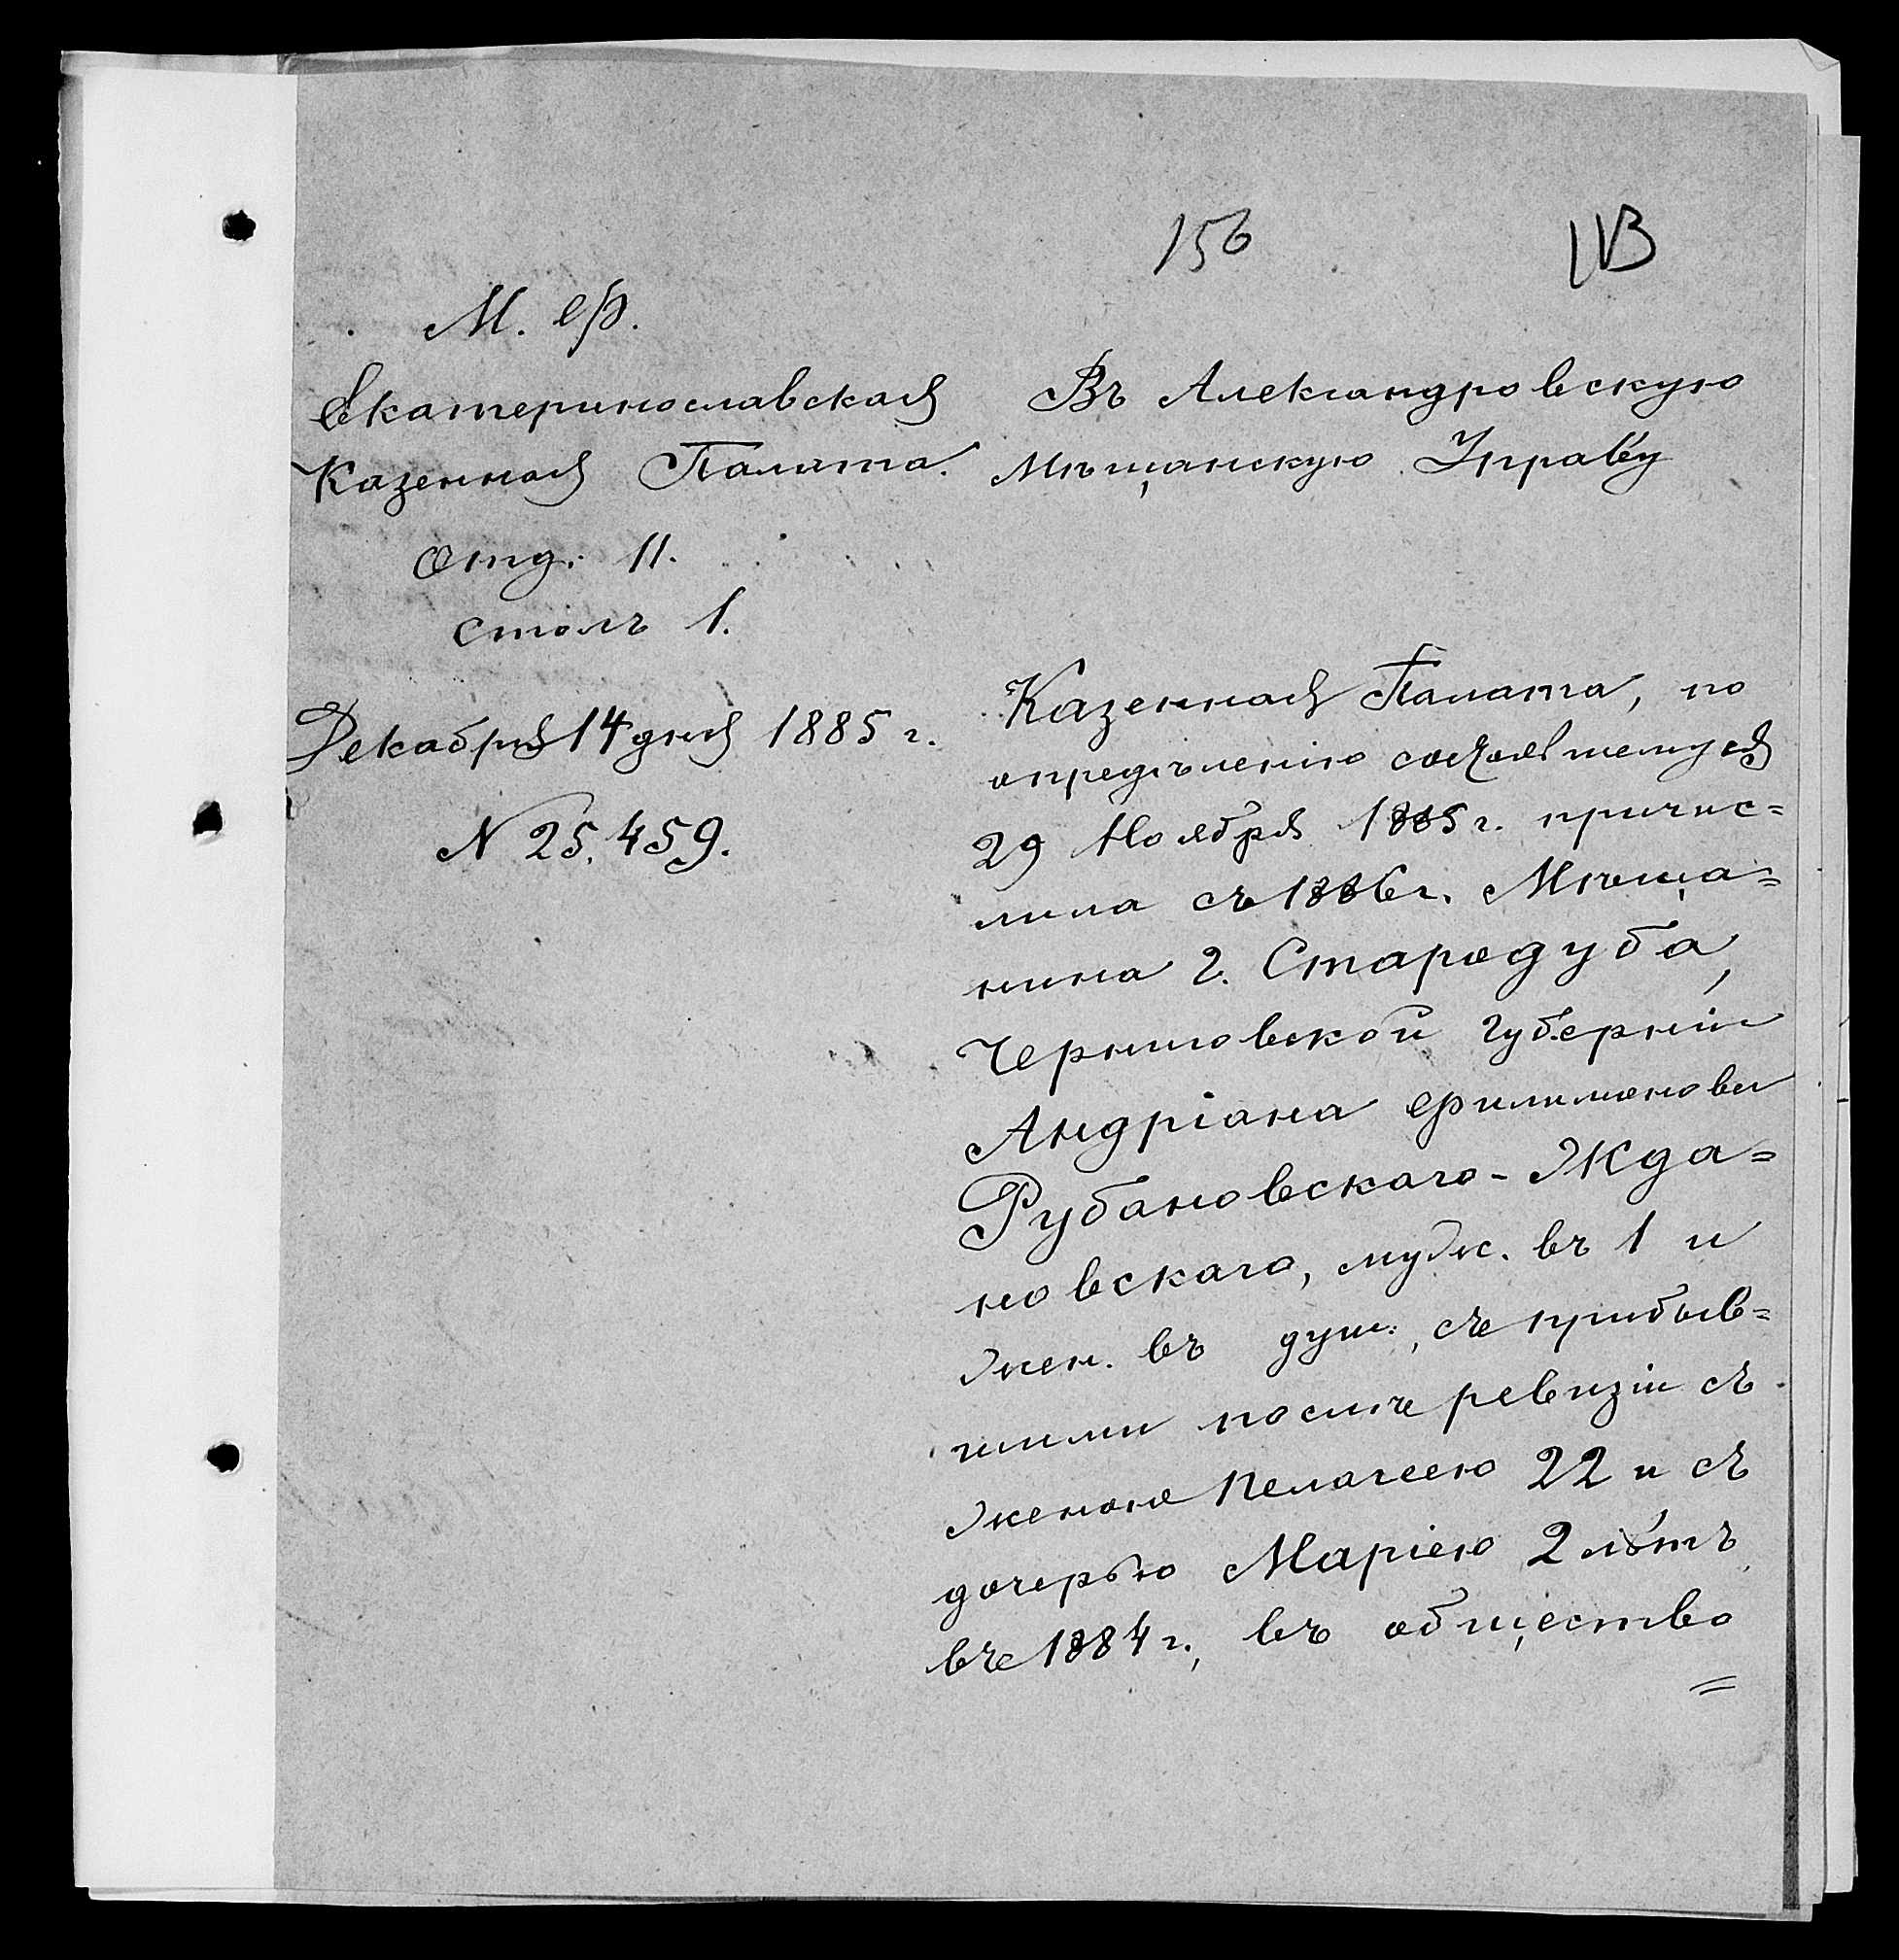 156
М. Ф.
Екатеринославская
Казенная Палата.
Отд. II.
Столъ 1.
Декабря 14 дня 1885 г.
N 25.459.
Въ Александровскую
Мѣщанскую Управу
Казенная Палата, по
опредѣленію состоявшемуся
29 Ноября 1885 г. причис=
лила съ 1886 г. Мѣща=
нина г. Стародуба,
Черниговской губерніи
Андріана Филимонова
Рубановскаго-Жда=
новскаго, муж. въ 1 и
жен. въ душ., съ прибыв=
шими послѣ ревизіи съ
женою Пелагеею 22 и съ
дочерью Маріею 2 лѣтъ
въ 1884 г., въ общество
=